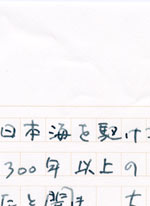 日本海を駆け
300年以上の
たと聞き